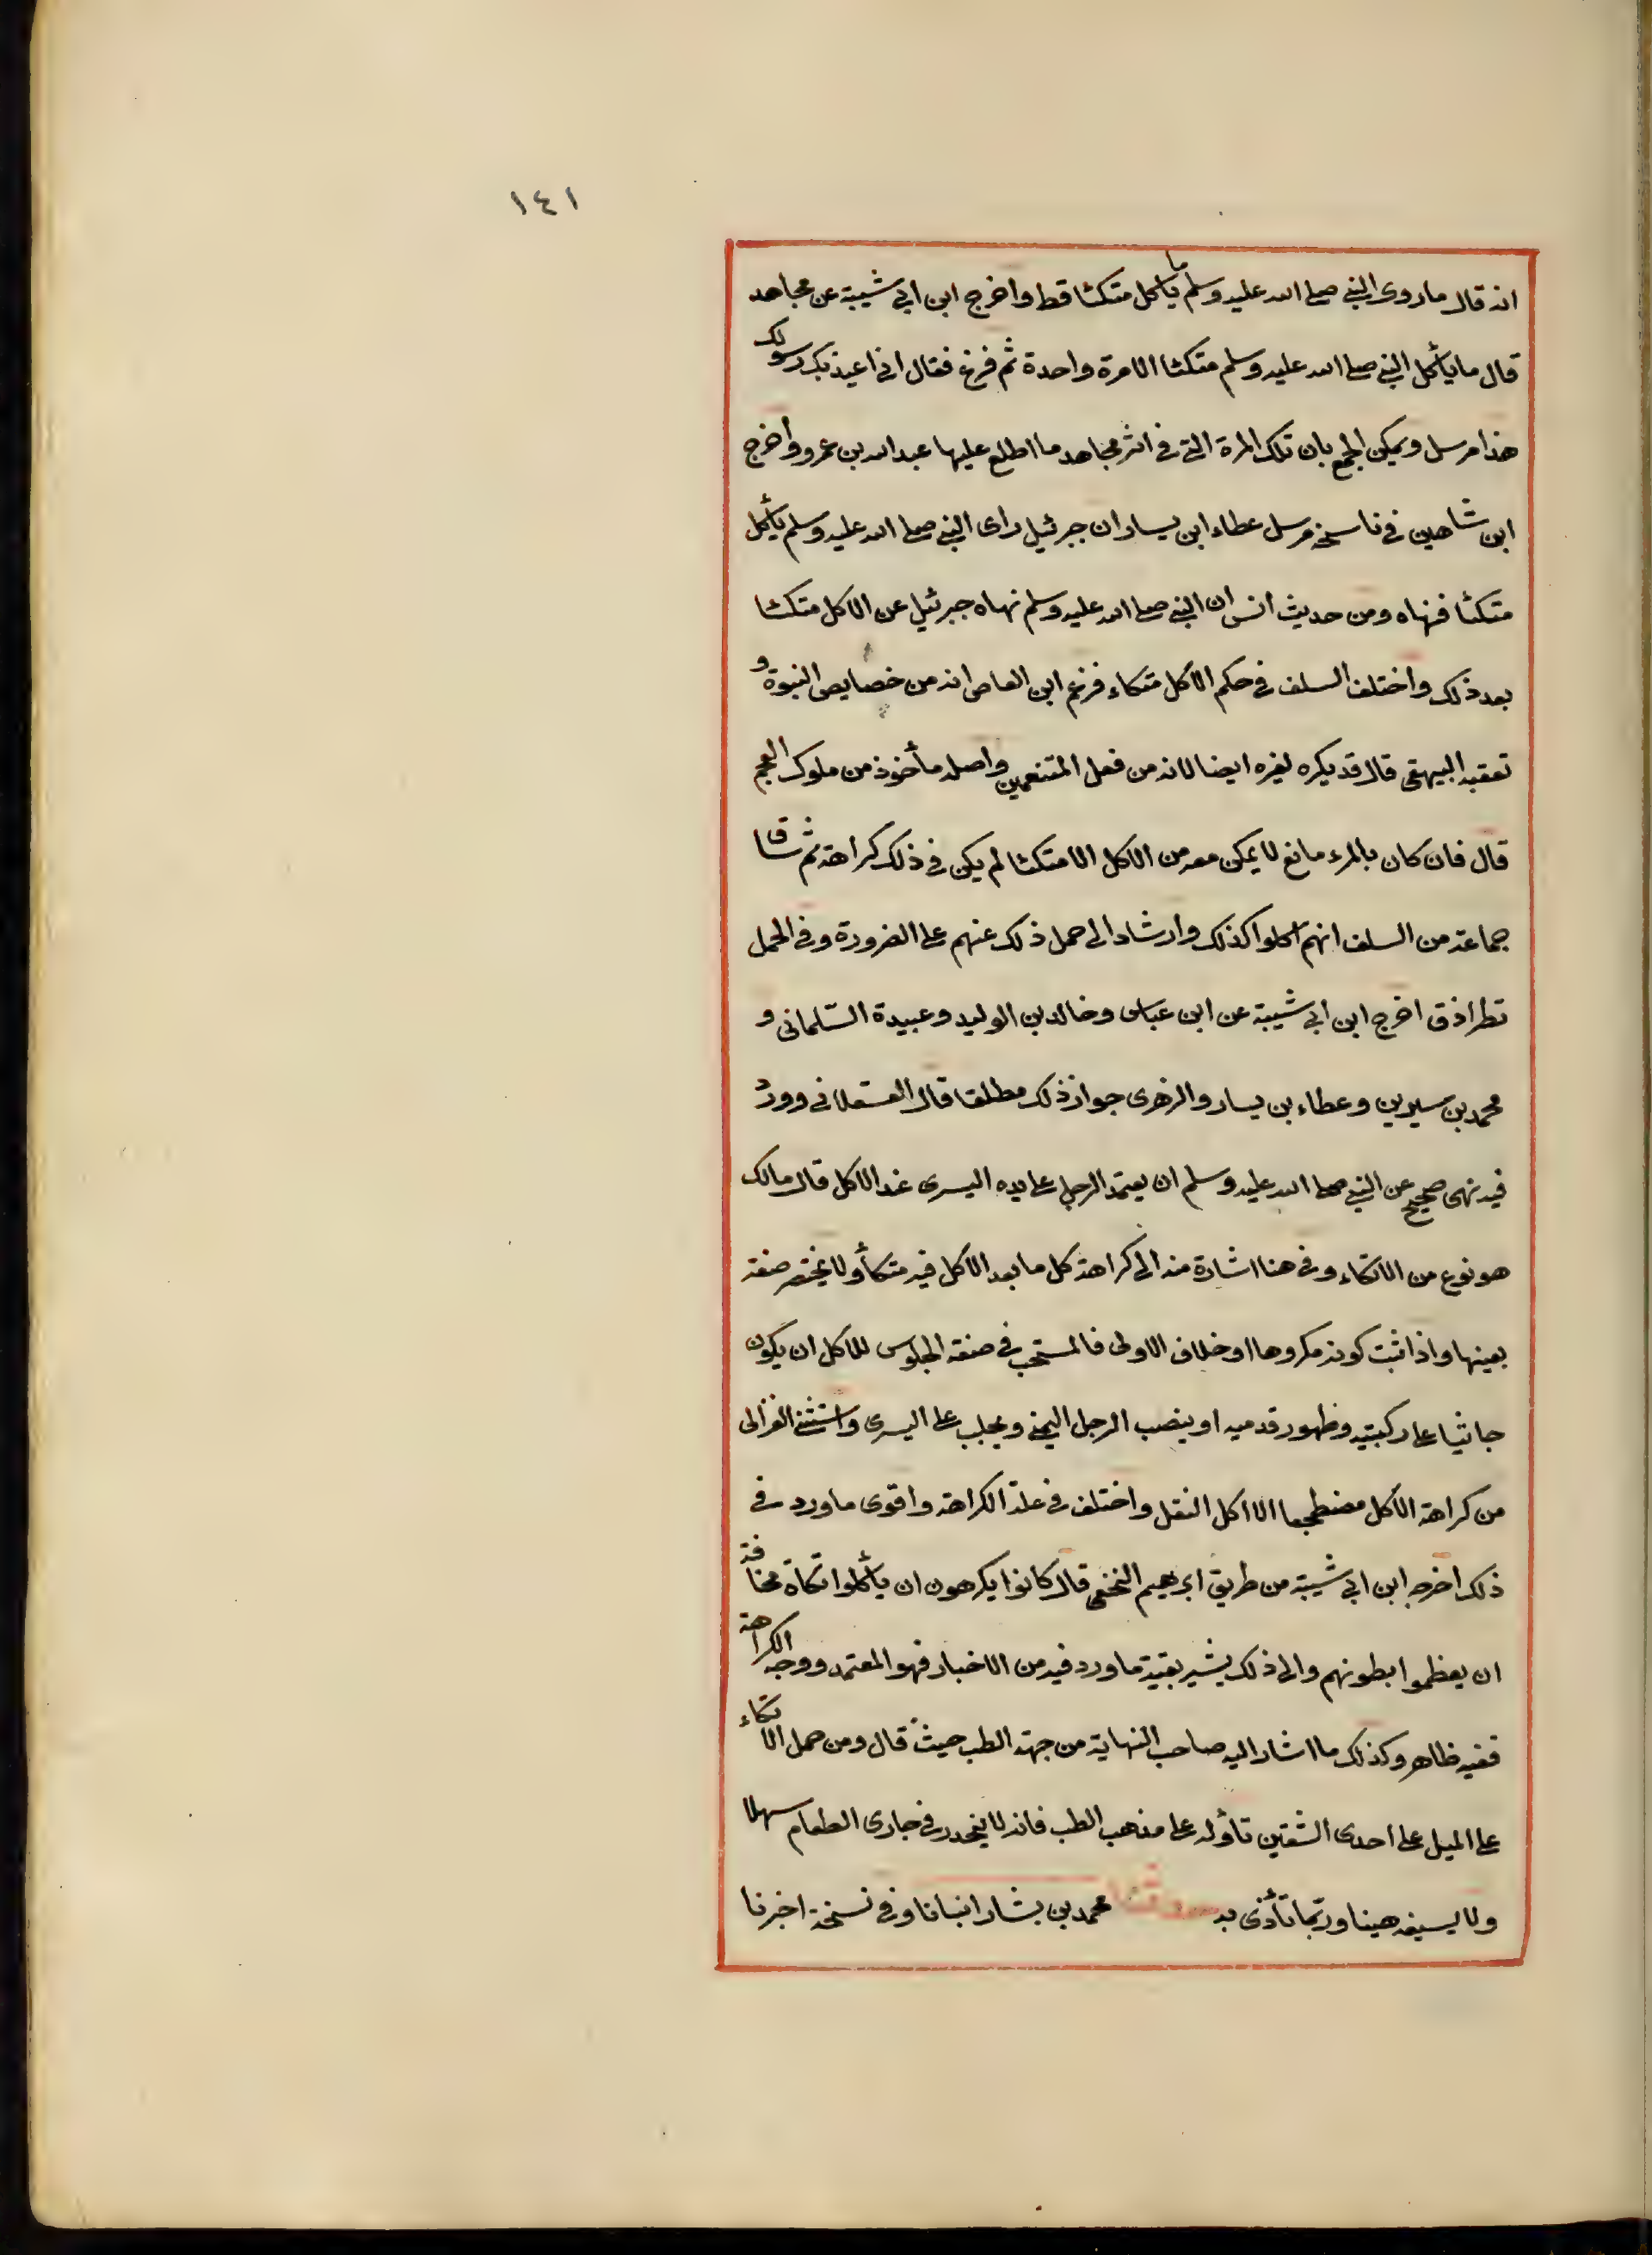 ١٤١
انه قال ما روى النبي صلى الله عليه وسلم ما يأكل متكئا قط واخرج ابن ابي شيبة عن مجاهد
قال ما يأكل النبي صلى الله عليه وسلم متكئا الا مرة واحدة ثم فرغ فقال اني اعيذبك رسولك
هذا مرسل ويمكن الجمع بان تلك المرة التي في اثر مجاهد ما اطلع عليها عبد الله بن عمرو واخرج
ابن شاهين في ناسخه مرسل عطاء ابن يسار ان جبرئيل رأى النبي صلى الله عليه وسلم يأكل
متكئا فنهاه ومن حديث انس ان النبي صلى الله عليه وسلم نهاه جبرئيل عن الاكل متكئا
بعد ذلك واختلف السلف في حكم الأكل متكاء فزعم ابن العاص انه من خصايص النبوة و
تعقبه البيهقي قال قد يكره لغيره ايضا لانه من فعل المتنعمين واصله مأخوذ من ملوك العجم
قال فان كان بالمرء مانع لا يمكن معه من الاكل الا متكئا لم يكن في ذلك كراهة ثم ساق
جماعة من السلف انهم اكلوا كذلك وارشاد الى حمل ذلك عنهم على الضرورة وفي الحمل
نظر اذ ق اخرج ابن ابي شيبة عن ابن عباس وخالد بن الوليد وعبيدة السّلماني و
محمد بن سيرين وعطاء بن يسار والزهري جواز ذلك مطلقا قال العسقلاني وورد
فيه نهى صحيح عن النبي صلى الله عليه وسلم ان يعتمد الرجل على يده اليسرى عند الاكل قال مالك
هو نوع من الاتكاء وفي هذا اشارة منه الى كراهة كل ما يعد الاكل فيه متكأ ولا يختص صفة
بعينها واذا ثبت كونه مكروها او خلاف الاولى فالمستحب في صفة الجلوس للاكل ان يكون
جاثيا على ركبتيه وظهور قدميه او ينصب الرجل اليمنى ويجلس على اليسرى واستثنى الغزالى
من كراهة الأكل مضطجعا الا اكل النقل واختلف في علة الكراهة واقوى ما ورد في
ذلك اخرجه ابن ابي شيبة من طريق ابرهيم النخعي قال كانوا يكرهون ان يأكلوا تكاة مخافة
ان يعظموا بطونهم والى ذلك يشير بقية ما ورد فيه من الاخبار فهو المعتمد ووجه الكراهة
ففيه ظاهر وكذلك ما اشار اليه صاحب النهاية من جهة الطب حيث قال ومن حمل الاتكاء
على الميل على احدى الشقين تأوله على مذهب الطب فانه لا ينحدر في جارى الطعام سهلا
ولا يسيغه هينا وربّما تأذى به حدثنا محمد بن بشار انبانا وفي نسخة اخبرنا